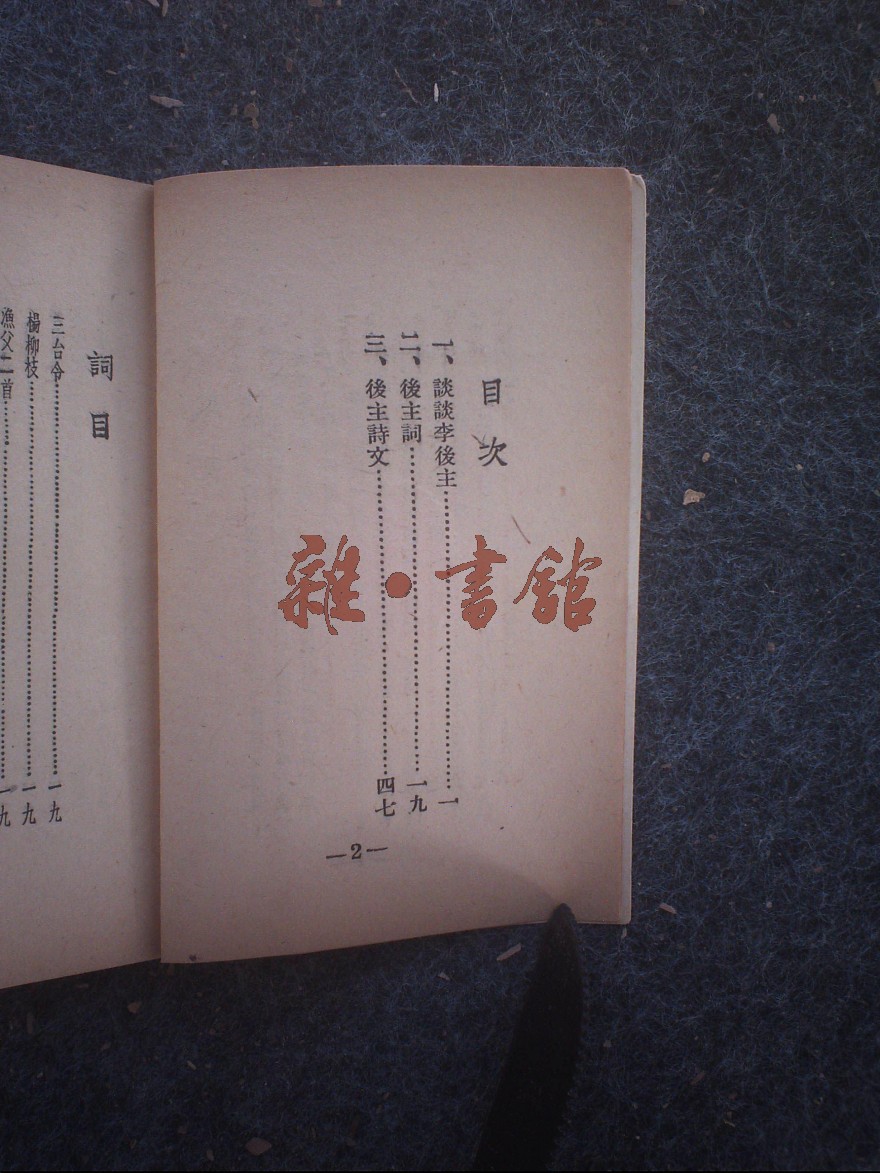 目次
一、談談李後主……一
二、後主詞……一九
三、後主詩文……四七
—2—
詞目
三台令……一九
楊柳枝……一九
漁父二首……一九
雜·書館